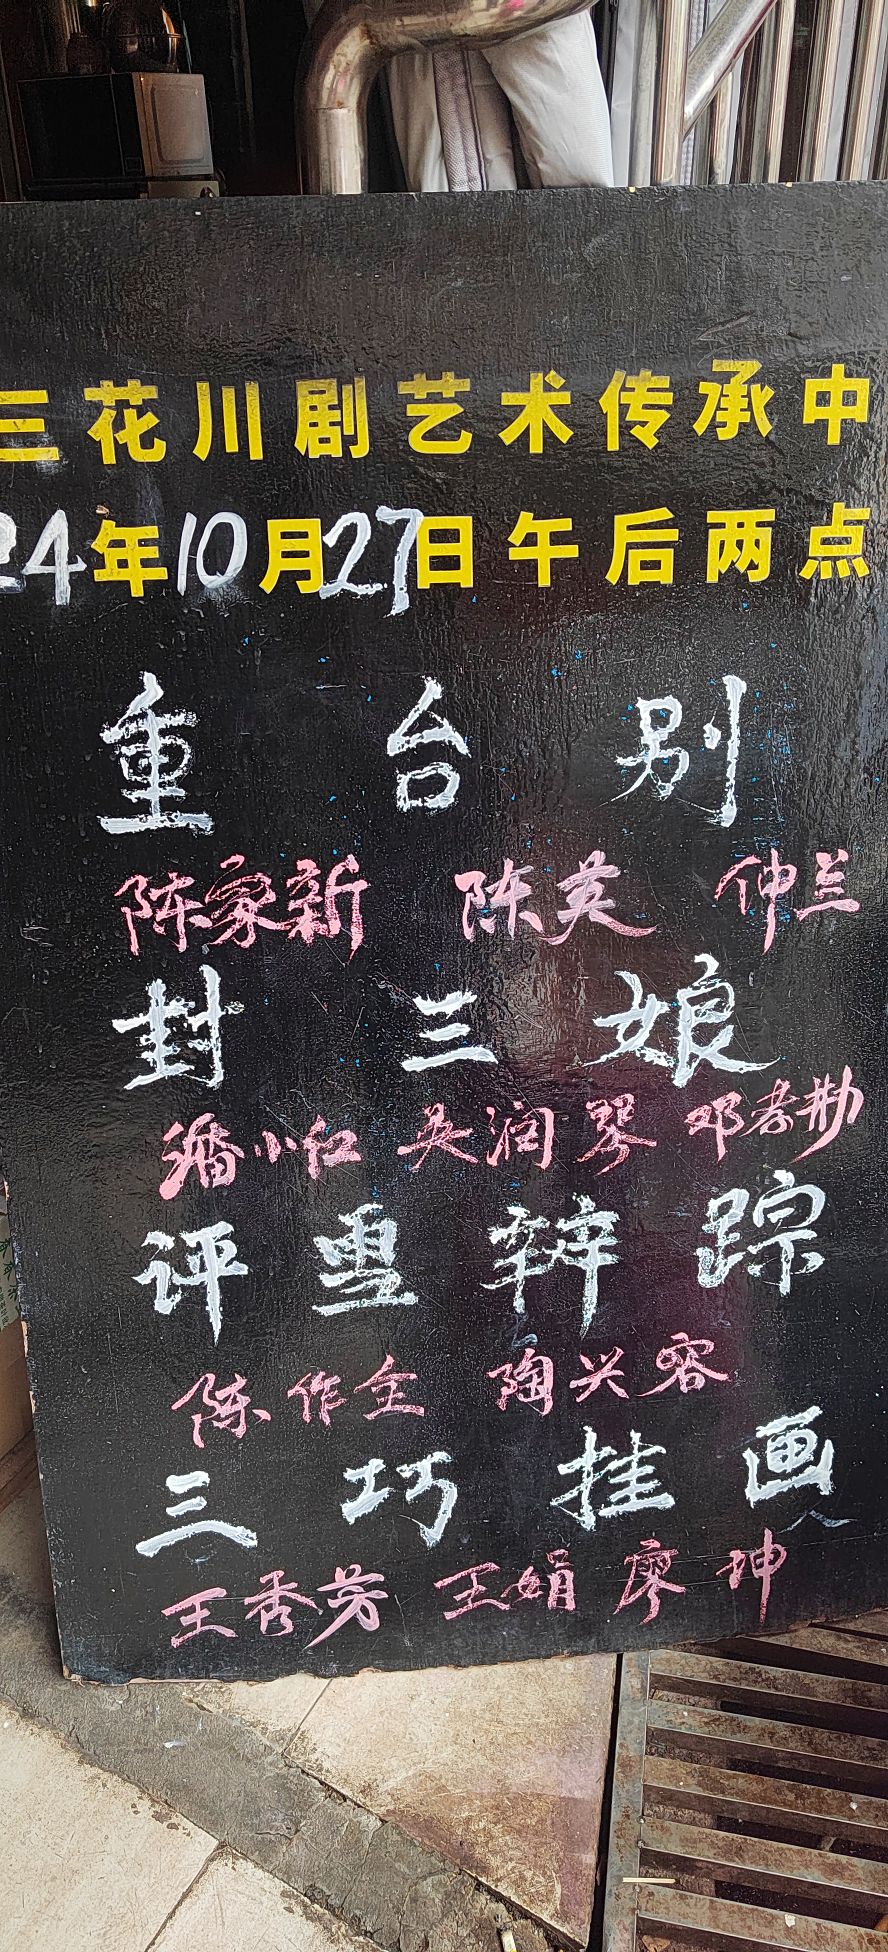 三花川剧艺术传承中
24年10月27日午后两点
重台别
陈家新 陈英 仲兰
封三娘
潘小红 吴润琴 邓孝勤
评雪辨踪
陈作全 陶兴容
三巧挂画
王秀芳 王娟 廖坤